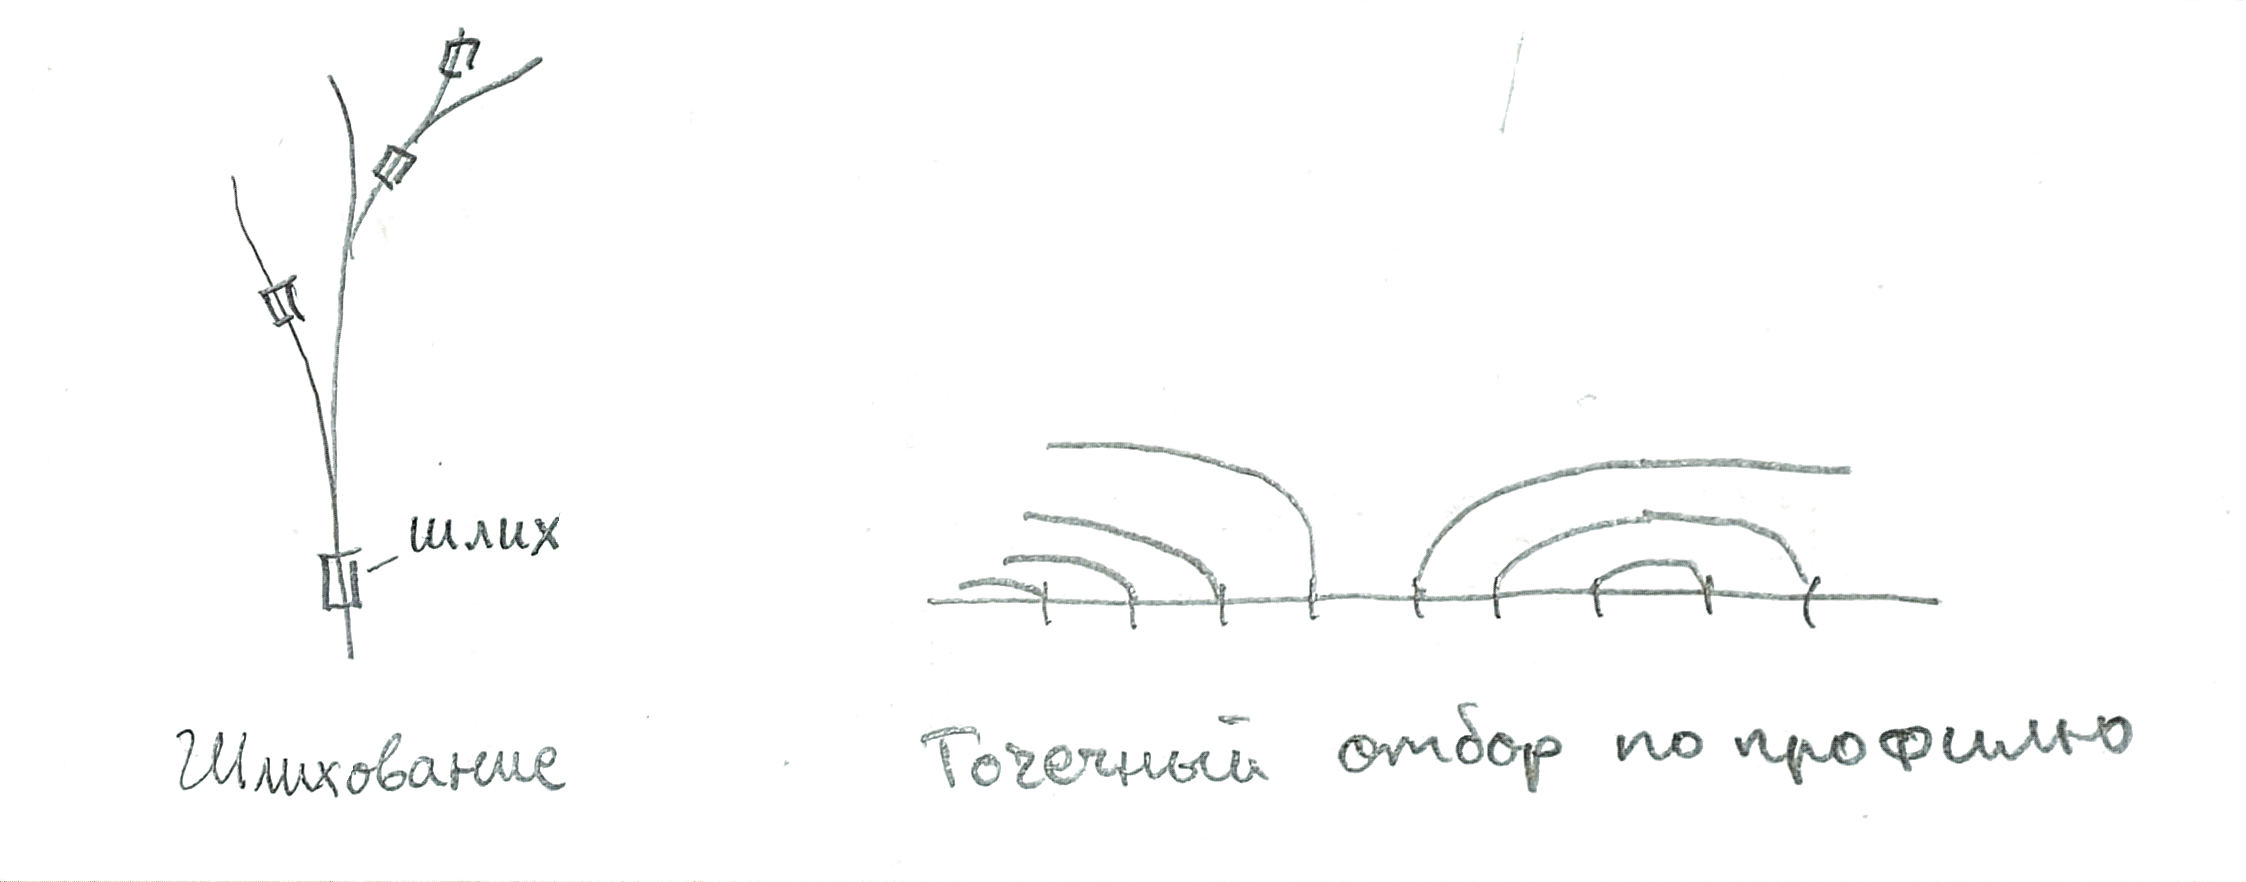 шлих
Шлихование
Точечный отбор по профилю